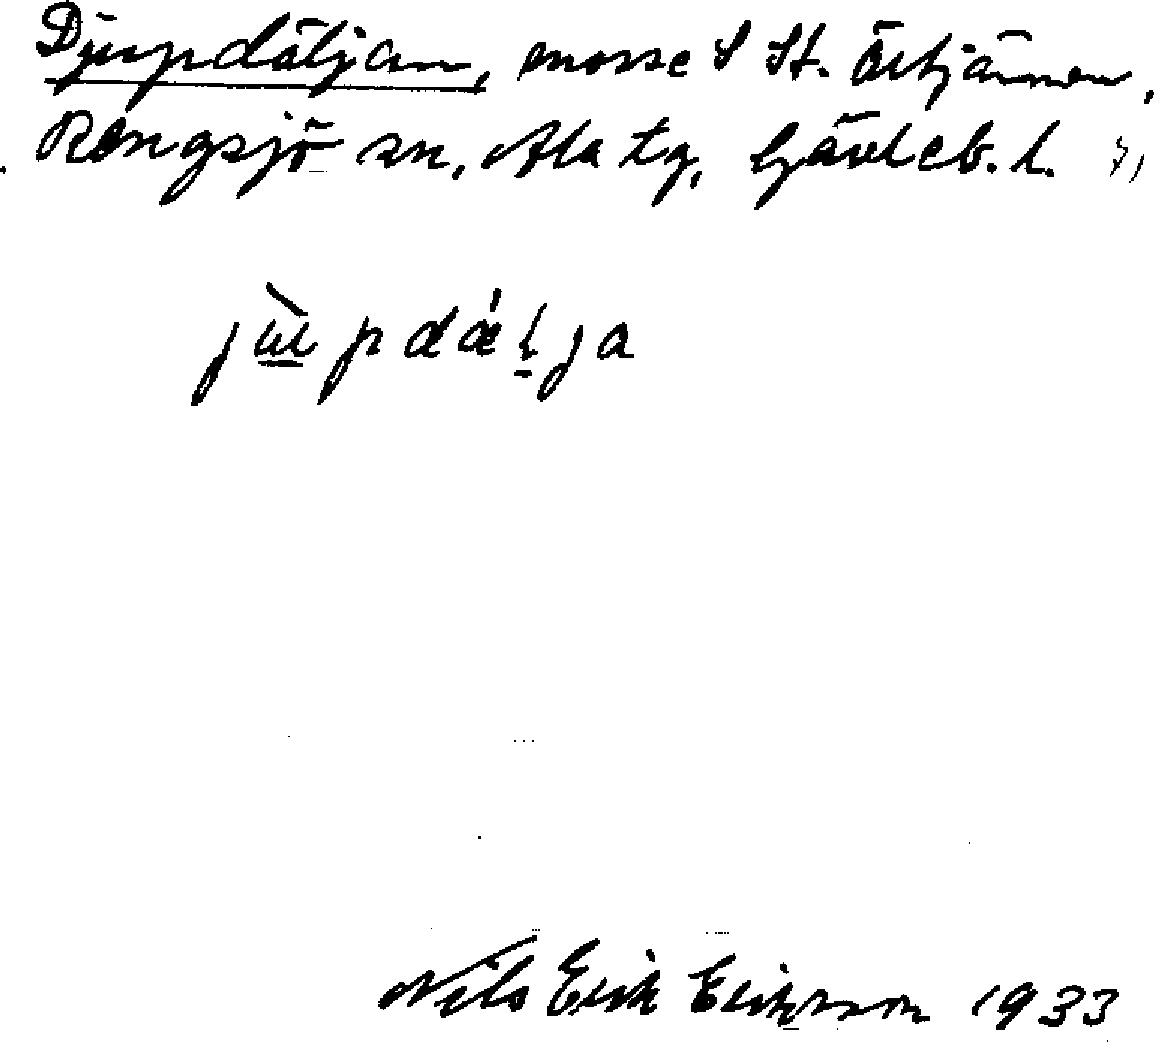 Djupdäljan, mosse S St. Örtjärnen,
Rengsjö sn, Ala tg, Gävleb. l.
Nils Erik Eriksson 1933